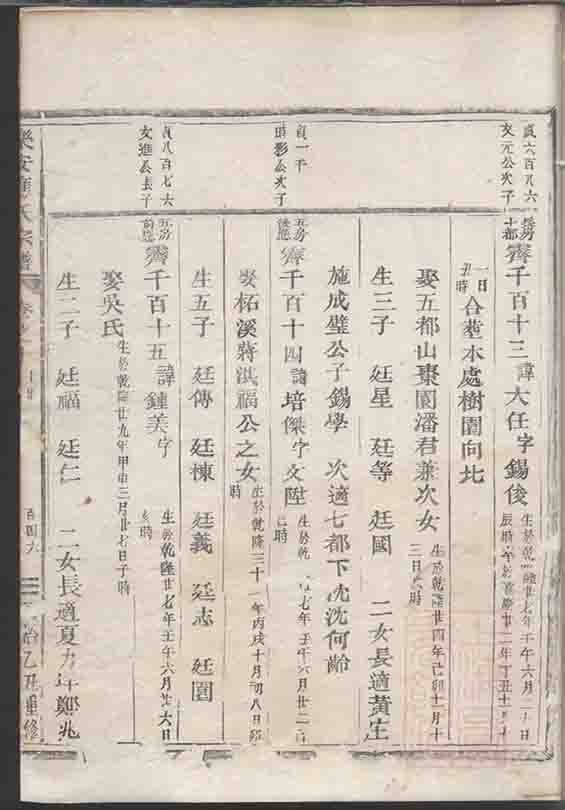 貞六百九六
文元公次子
齊千百十三諱大任字錫俊
生於乾隆廿七年壬午六月
日 時合塟本處樹園向北
聚五都山棗園潘君兼次女
生於乾隆廿四年己卯十一月十
三日 時
生三子 廷星 廷等 廷國 二女長適黃宅
施成璧公子錫學 次適七都下沈沈何齡
貞一千
公次子
五房
齊千百十四諱培傑字文陞
生於乾 七年壬午六月廿二
時
娶柘溪蔣洪福公之女
生於乾隆三十一年丙戌十月初八日卯
時
生五子 廷傳 廷棟 廷義 廷志 廷園
貞八百七六
文進公長子
五房
齊千百十五諱鍾美字
生於乾隆廿七年壬午六月廿六日
時
娶吳氏
生於乾隆廿九年甲申三月廿七日子時
生二子 廷福 廷仁 二女長適夏九年鄭兆
氏宗譜
百四六
治乙丑重修